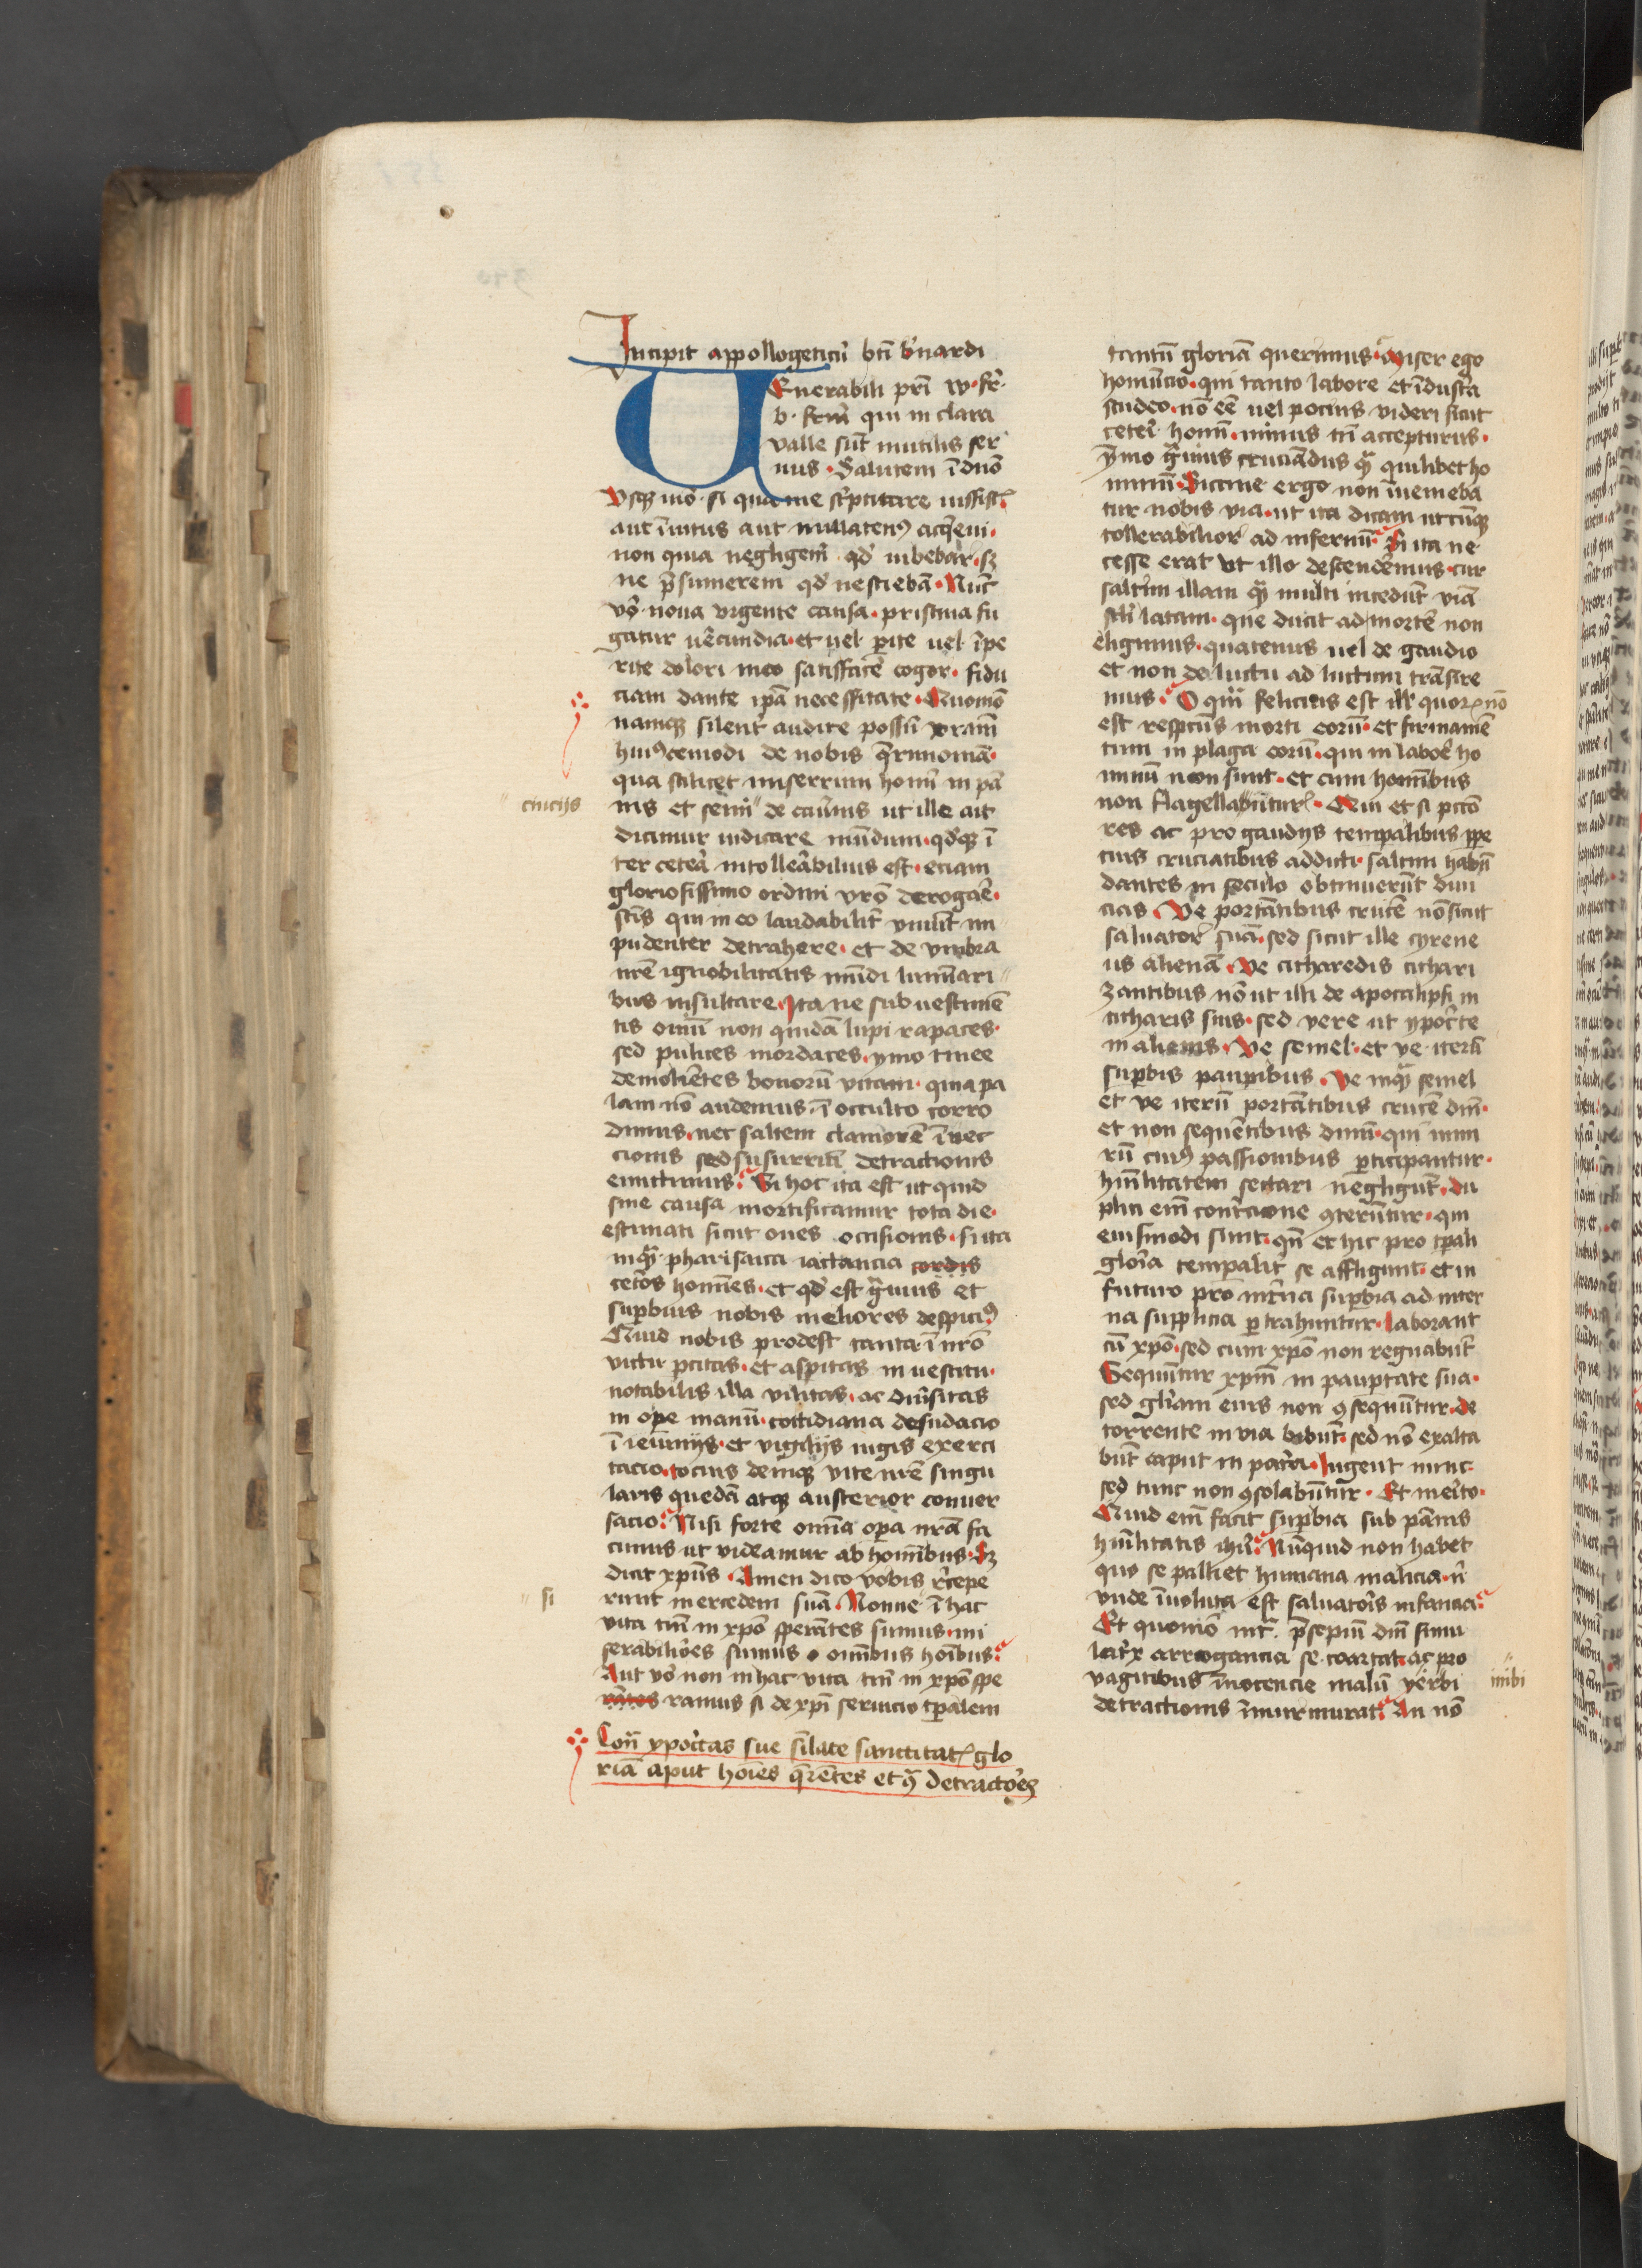 Incipit appollogeticū bti b'nardi
VEnerabili pri W. fr.
b. frm qui in clara
valle sūt inutilis ser
uus. Salutem ī dnō
Vsq mō si qua me sc'ptitare iussist.
aut īuitus aut nullaten9 acq'eui.
non quia negligerē qd' iubebar. sz
ne p̄sumerem qd' nesciebā. Nūc
vō noua vrgente causa. pristina fu
gatur u'ecundia. et uel pite uel īpe
rite dolori meo satisfac'e cogor. fidu
ciam dante ipā necessitate. Quomō
namqz silent' audire possū vram
hui9cemodi de nobis q̄rimoniā.
qua scilicet miserrimi homī in pā
nis et semi" de cau'nis ut ille ait
dicimur iudicare mūdum. qd'qz ī
ter cetera intollerabilius est. etiam
gloriosissimo ordini vrō derogare.
scīs qui in eo laudabilit' viuūt im
pudenter detrahere. et de vmbra
nrē ignobilitatis mūdi luminari"
bus insultare. Ita ne sub uestimē
tis ouiū non quidā lupi rapaces.
sed pulices mordaces. ymo tinee
demoliētes bonorū vitam. quia pa
lam nō audemus. ī occulto corro
dimus. nec saltem clamorē ī uec
cionis sed susurriū detractionis
emittimus. Si hoc ita est ut quid
sine causa mortificamur tota die.
estimati sicut oues occisionis. si ita
inquā pharisaica iactancia cordis
cetōs homies. et qd' est g̃uius et
supbius nobis meliores despici9
Quid nobis prodest tanta ī nrō
victu pcitas. et aspitas in uestitu.
notabilis illa vilitas. ac diu'sitas
in ope manū. cottidiana desudacio
ī ieiuniis. et vigiliis iugis exerci
tacio. tocius deniqz vite nrē singu
laris quedā atqz austerior conuer
sacio. Nisi forte omīa opa nrā fa
cimus ut videamur ab hominibus. Sz
dicit xpūs. Amen dico vobis r'cepe
runt mercedem suā. Nonne ī hac
vita tm̄ in xpō sperātes sumus. mi
serabiliōes sumus omībus hoībus.
Aut vō non in hac vita tm̄ in xpō spe
rātes ramus si de xpī seruicio tpalem
Con̄ ypocitas sue siLate sanctitat glo
riā aput hoīes q̄rētes et 9 detractores
ciucijs
si
tantū gloriā querimus. Miser ego
homūcio. qui tanto labore et īdustria
studeo. nō eē uel pocius videri sicut
ceteri homī. minus tn̄ accepturus.
ȳmo g̃uius cruciādus qā quilibet ho
minū. Siccine ergo non īuenieba
tur nobis via. ut ita dicam utcūqz
tollerabilior ad infernū. Si ita ne
cesse erat vt illo descend'emus. cur
saltim illam quā multi incedūt viā
scil' latam. que ducit ad mortē non
eligimus. quatenus uel de gaudio
et non de luctu ad luctum trāsire
mus. O q̄m felicius est ill' quor nō
est respectus morti eorū. et firmamē
tum in plaga eorū. qui in labor' ho
minū non sunt. et cum homībus
non flagellabūtur. Qui et si pctō
res ac pro gaudiis temporalibus ppe
tuis cruciatibus adducti. saltim habū
dantes in seculo obtinuerūt diui
cias. Ve portātibus crucē nō sicut
saluator suā. sed sicut ille cyrene
us alienā. Ve citharedis cithari
zantibus nō ut illi de apocalipsi in
citharis suis. sed vere ut ypoc'te
in alienis. Ve semel. et ve iterū
supbis paupibus. Ve inquā semel
et ve iterū portātibus crucē dnī.
et non sequētibus dnm. qui nimi
rū cui9 passionibus pticipantur.
hūilitatem sectari negligūt. du
plici em̄ contricione 9terūtur. qui
eiusmodi sunt. qn̄ et hic pro tpali
gloria temporalit' se affligunt. et in
futuro pro int'na supbia ad inter
na supplicia ptrahuntur. Laborant
cū xpō. sed cum xpō non regnabūt
Sequūtur xpm̄ in paupertate sua.
sed gl'iam eius non 9sequūtur. de
torrente in via bibūt. sed nō exalta
būt caput in patria. Lugent nunc.
sed tunc non 9solabūtur. Et merito.
Quid em̄ facit supbia sub pānis
hūilitatis ihū. Nūquid non habet
quo se palliet humana malicia. nī
vnde īuoluta est saluatoris infancia.
Et quomō int' p̄sepiū dnī simu
latrix arrogancia se coartat. ac pro
vagitibus īnocencie malū verbi
detractionis īmurmurat. An nō
inibi